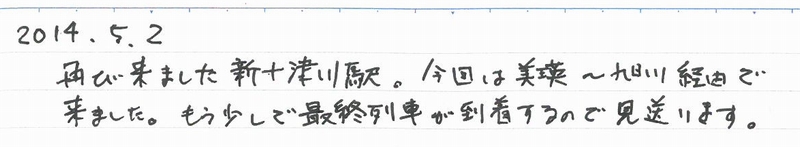 2014.5.2
再び来ました新十津川駅。今回は美瑛〜旭川経由で
来ました。もう少しで最終列車が到着するので見送ります。